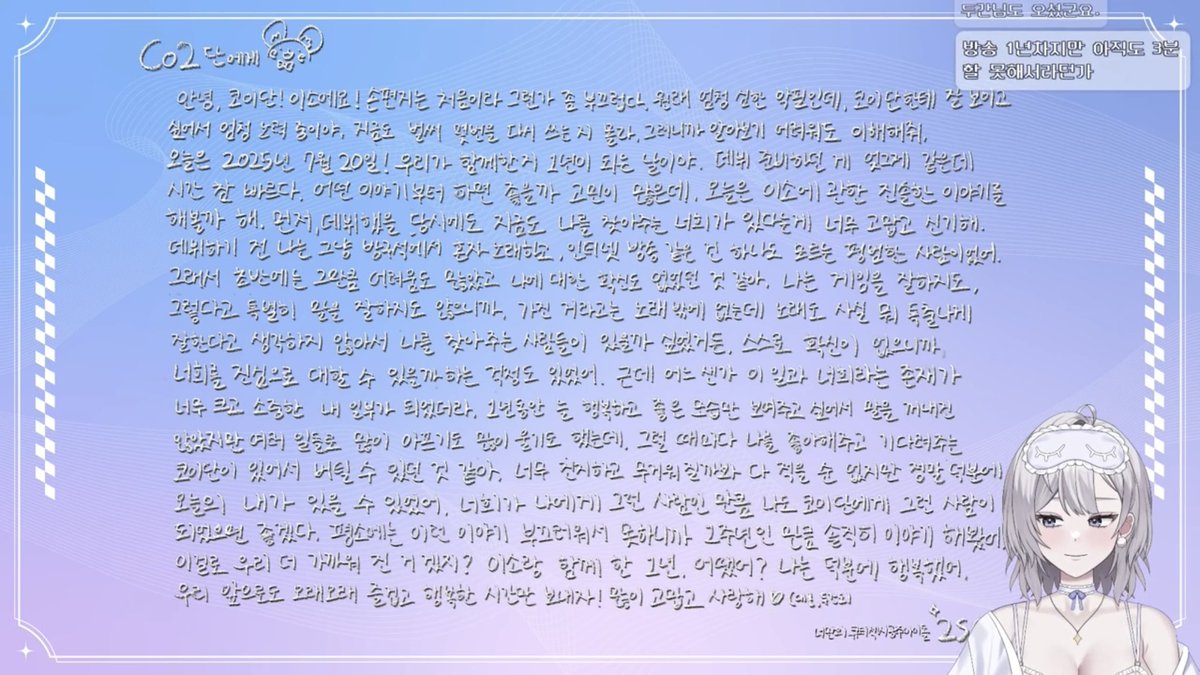 두칸님도 오셨군요.
방송 1년차지만 아직도 3분
할 못해서라던가
Co2단에게
안녕, 코이단! 이소에요! 손편지는 처음이라 그런가 좀 부끄럽다. 원래 엄청 심한 악필인데, 코이단한테 잘 보이고
싶어서 엄청 노력 중이야. 지금도 벌써 몇번을 다시 쓰는지 몰라. 그러니까 알아보기 어려워도 이해해줘.
오늘은 2025년 7월 20일! 우리가 함께한지 1년이 되는 날이야. 데뷔 준비하던 게 엊그제 같은데
시간 참 빠르다. 어떤 이야기부터 하면 좋을까 고민이 많은데, 오늘은 이소에 관한 진솔한 이야기를
해볼까 해. 먼저, 데뷔했을 당시에도 지금도 나를 찾아주는 너희가 있다는게 너무 고맙고 신기해.
데뷔하기 전 나는 그냥 방구석에서 혼자 노래하고, 인터넷 방송 같은 건 하나도 모르는 평범한 사람이었어.
그래서 초반에는 그만큼 어려움도 많았고 나에 대한 확신도 없었던 것 같아. 나는 게임을 잘하지도,
그렇다고 특별히 말을 잘하지도 않으니까. 가진 거라고는 노래 밖에 없는데 노래도 사실 뭐 특출나게
잘한다고 생각하지 않아서 나를 찾아주는 사람들이 있을까 싶었거든. 스스로 확신이 없으니까
너희를 진심으로 대할 수 있을까 하는 걱정도 있었어. 근데 어느샌가 이 일과 너희라는 존재가
너무 크고 소중한 내 일부가 되었더라. 1년동안 늘 행복하고 좋은 모습만 보여주고 싶어서 말을 꺼내진
않았지만 여러 일들로 많이 아프기도 많이 울기도 했는데, 그럴 때마다 나를 좋아해주고 기다려주는
코이단이 있어서 버틸 수 있던 것 같아. 너무 진지하고 무거워질까봐 다 적을 순 없지만 정말 덕분에
오늘의 내가 있을 수 있었어. 너희가 나에게 그런 사람인 만큼 나도 코이단에게 그런 사람이
되었으면 좋겠다. 평소에는 이런 이야기 부끄러워서 못하니까 1주년인 만큼 솔직히 이야기 해봤어
이걸로 우리 더 가까워 진 거 겠지? 이소랑 함께 한 1년, 어땠어? 나는 덕분에 행복했어.
우리 앞으로도 오래오래 즐겁고 행복한 시간만 보내자! 많이 고맙고 사랑해
너만의 큐티섹시공주아이돌 25